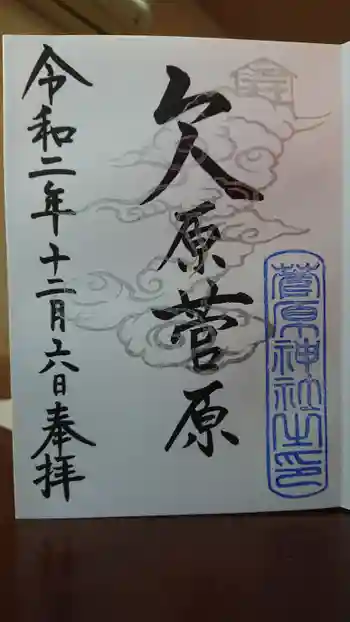 欠原菅原
令和二年十二月六日奉拝
菅原神社之印